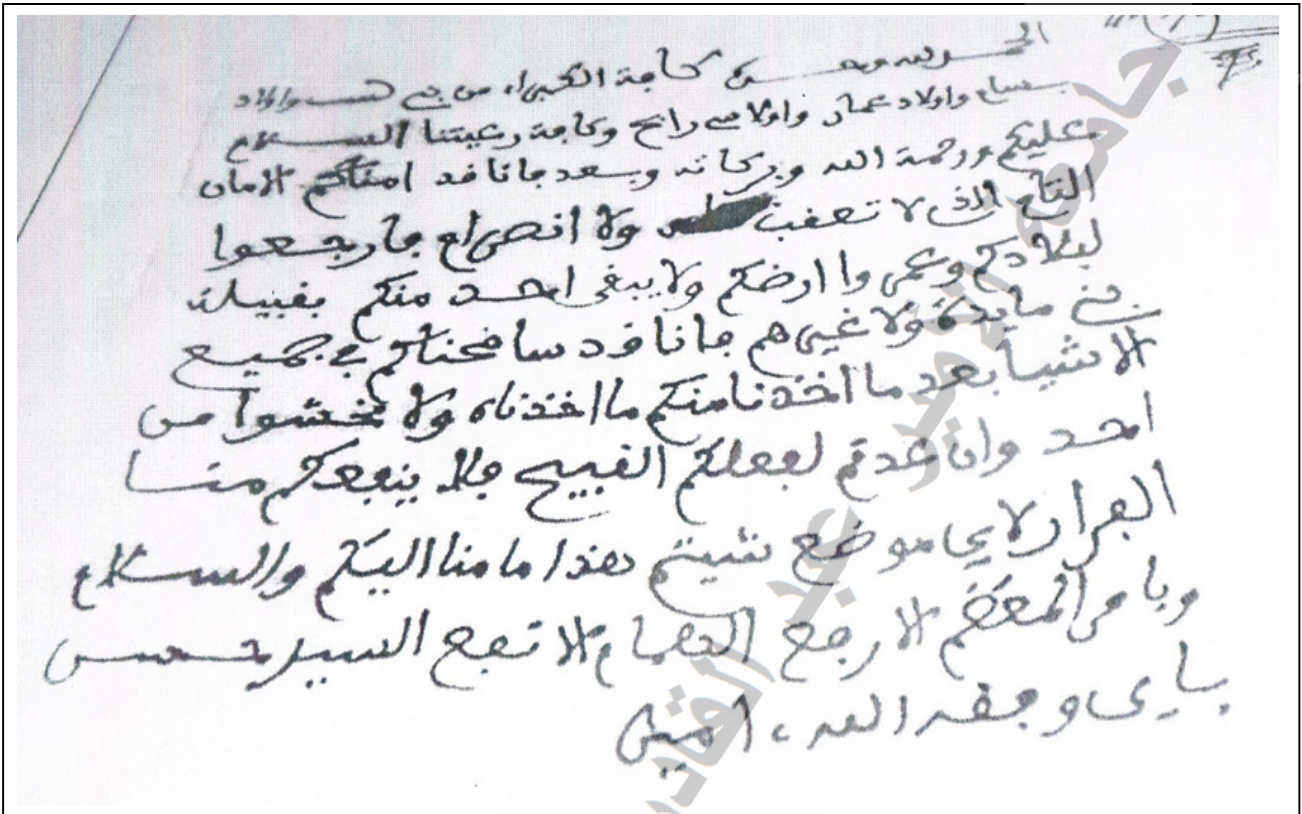 الحمد لله وحده كافة الكبراء من بني واولاد
واولاد عمار واولاد سي رابح وكافة رعيتنا الســلام
عليكم ورحمة الله وبركاته وبعد فانا قد امناكم الامان
التام الذي لا تعقب ولا انصرام فارجعوا
لبلادكم وعمروا ارضكم ولا يبقى احد منكم بقبيلة
بني مايدة ولا غيرهم فانا قد سامحناكم في جميع
الاشيا بعد ما اخذنا منكم ما اخذناه ولا تخشوا من
احد وان عدتم لفعلكم القبيح فلا ينفعكم منا
الفرار لاي موضع شيتم هذا ما منا اليكم والسلام
وبامر المعظم الارفع الهمام الانفع السيد حسن
باي وفقه الله ، امين
جامعة الأمير عبد القادر